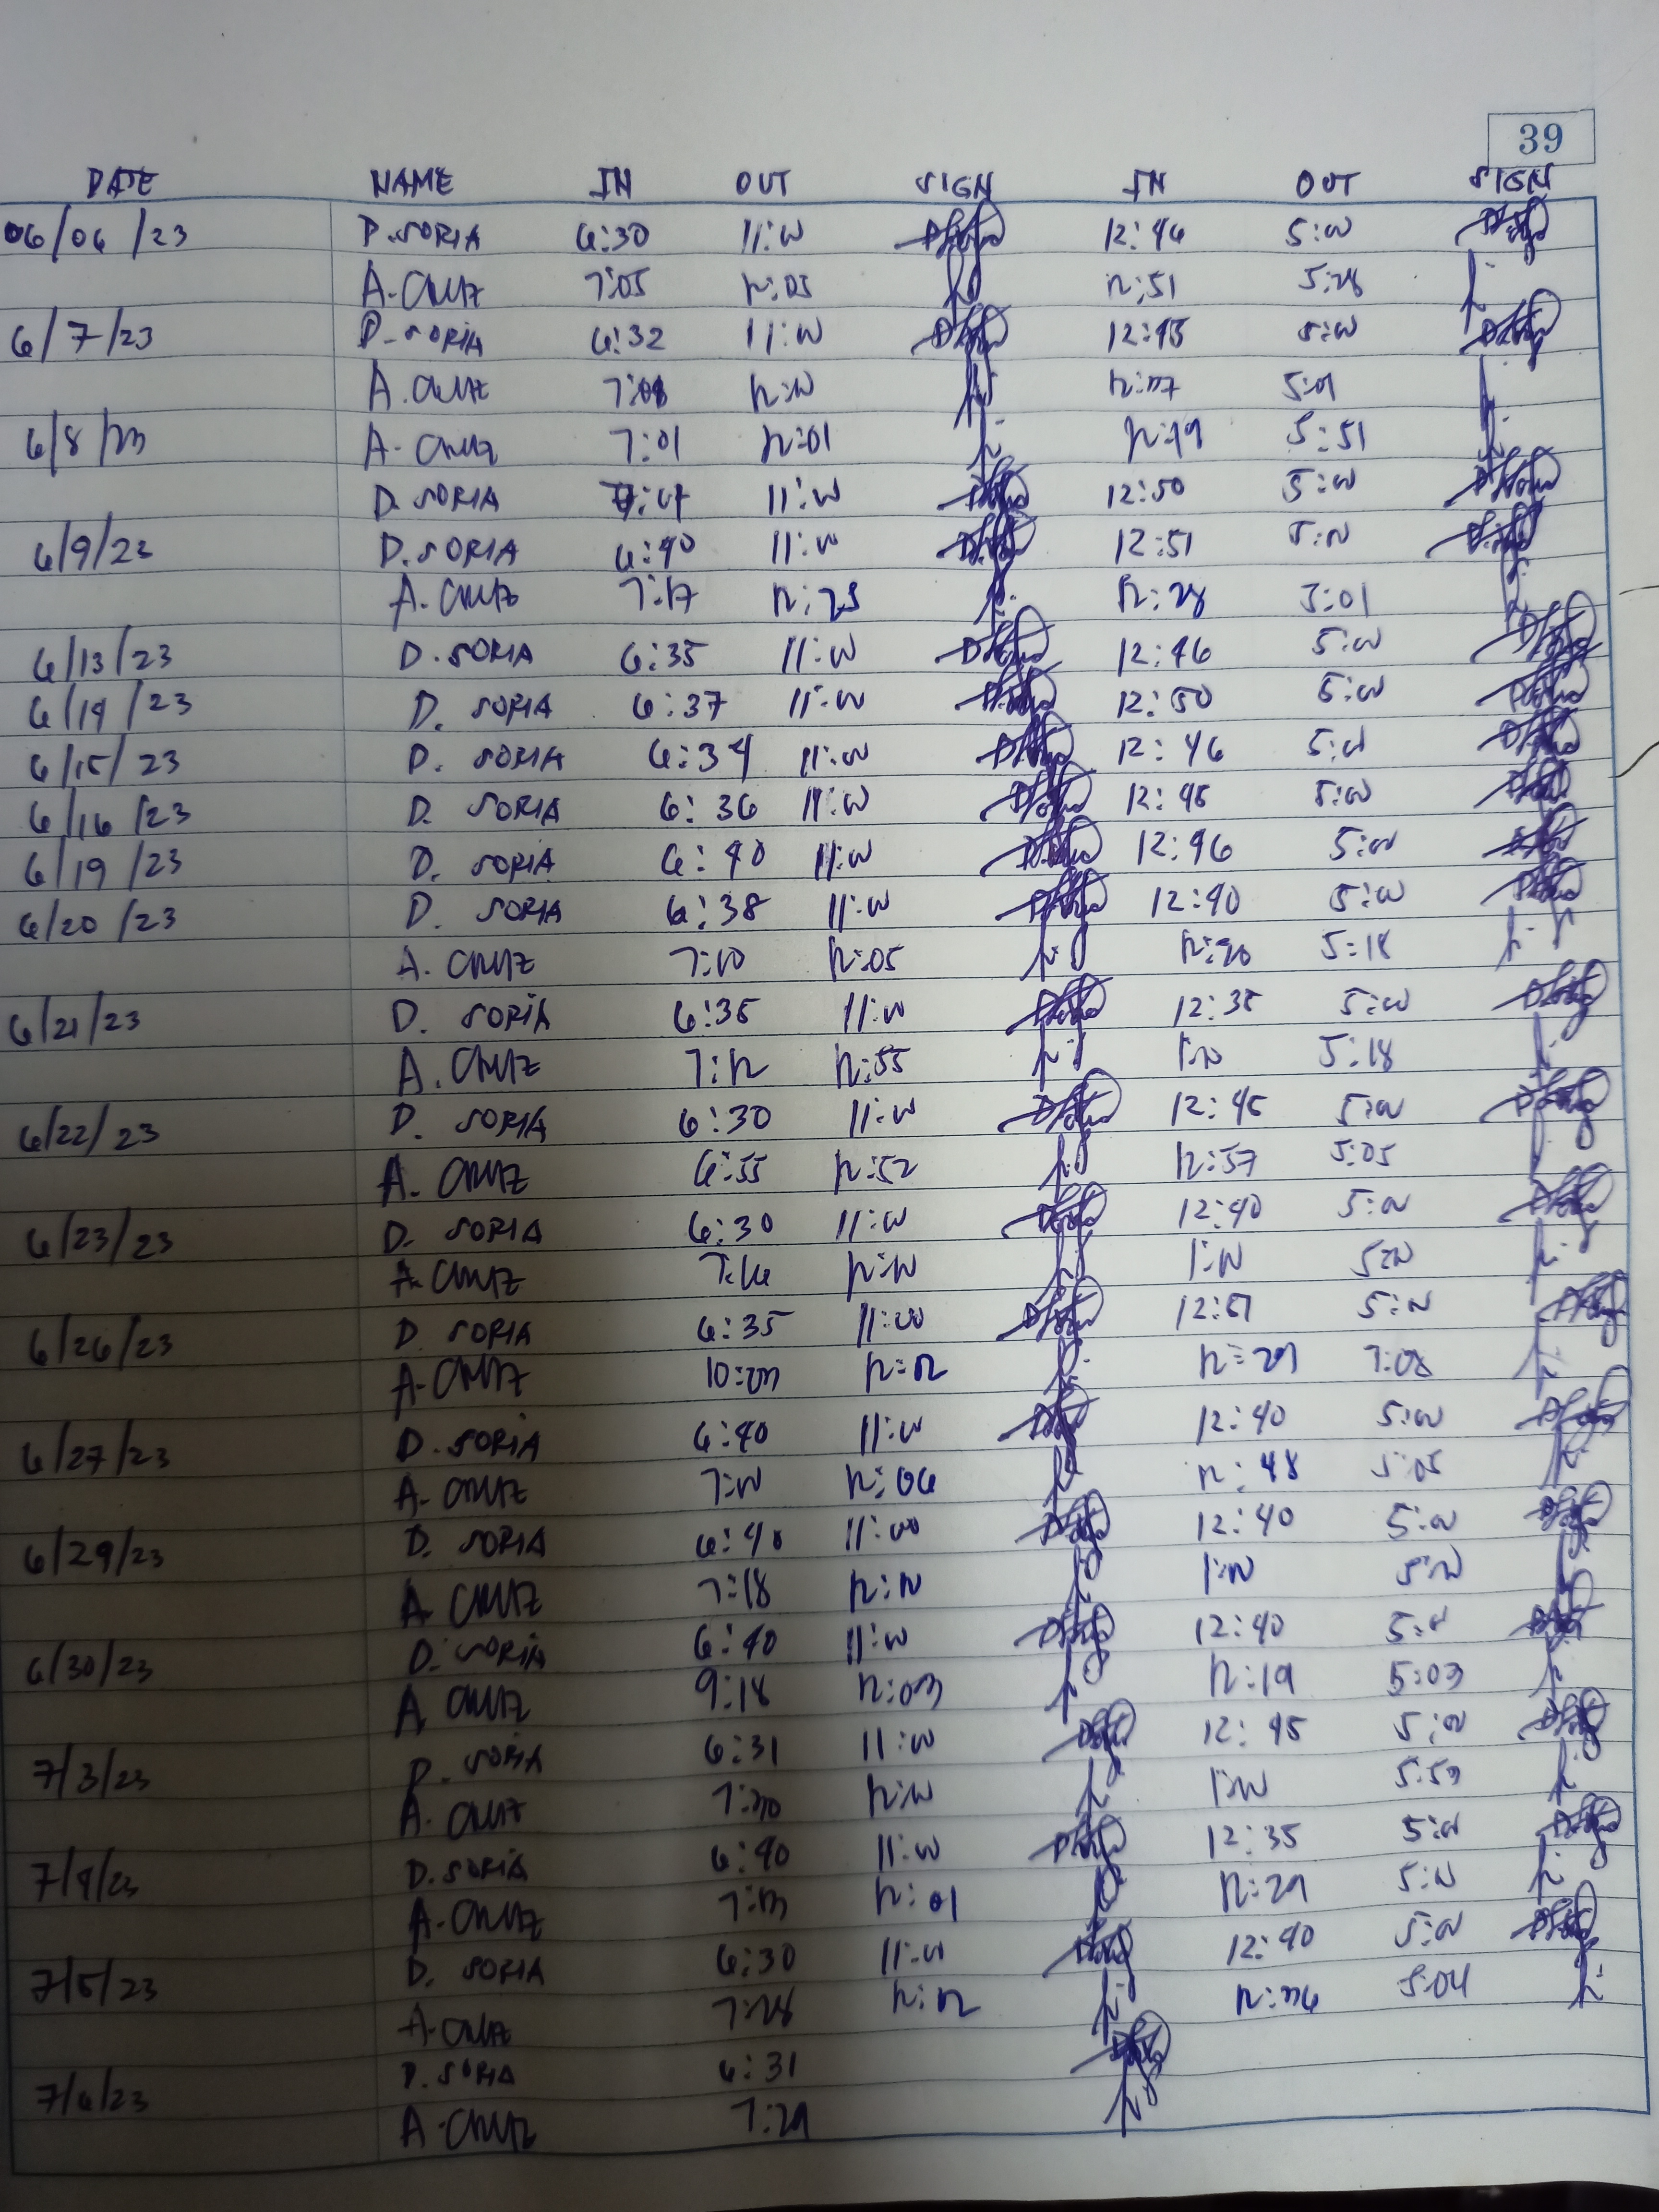 39
DATE NAME IN OUT SIGN IN OUT SIGN
06/06/23 D. SORIA 6:30 11:00 12:46 5:00
A. CRUZ 7:05 12:05 12:51 5:28
6/7/23 D. SORIA 6:32 11:00 12:45 5:00
A. CRUZ 12:00 12:37 5:01
6/8/23 A. CRUZ 7:01 12:01 12:49 5:51
D. SORIA 11:00 12:50 5:00
6/9/23 D. SORIA 6:40 11:00 12:51 5:00
A. CRUZ 7:17 12:23 12:28 5:01
6/13/23 D. SORIA 6:35 11:00 12:46 5:00
6/14/23 D. SORIA 6:37 11:00 12:50 5:00
6/15/23 D. SORIA 6:34 11:00 12:46 5:00
6/16/23 D. SORIA 6:36 11:00 12:45 5:00
6/19/23 D. SORIA 6:40 11:00 12:46 5:00
6/20/23 D. SORIA 6:38 11:00 12:40 5:00
A. CRUZ 7:10 12:05 12:20 5:18
6/21/23 D. SORIA 6:35 11:00 12:35 5:00
A. CRUZ 7:12 12:55 1:00 5:18
6/22/23 D. SORIA 6:30 11:00 12:45 5:00
A. CRUZ 6:55 12:52 12:57 5:05
6/23/23 D. SORIA 6:30 11:00 12:40 5:00
A. CRUZ 7:16 12:00 1:00 5:00
6/26/23 D. SORIA 6:35 11:00 12:51 5:00
A. CRUZ 10:23 12:12 12:29 7:08
6/27/23 D. SORIA 6:40 11:00 12:40 5:00
A. CRUZ 7:00 12:06 12:48 5:05
6/29/23 D. SORIA 6:40 11:00 12:40 5:00
A. CRUZ 7:18 12:12 1:00 5:12
6/30/23 D. SORIA 6:40 11:00 12:40 5:00
A. CRUZ 9:18 12:03 12:19 5:03
7/3/23 D. SORIA 6:31 11:00 12:45 5:00
A. CRUZ 7:30 12:00 1:00 5:53
7/4/23 D. SORIA 6:40 11:00 12:35 5:00
A. CRUZ 7:13 12:01 12:29 5:12
7/5/23 D. SORIA 6:30 11:00 12:40 5:00
A. CRUZ 7:28 12:12 12:36 5:04
7/6/23 D. SORIA 6:31
A. CRUZ 7:29